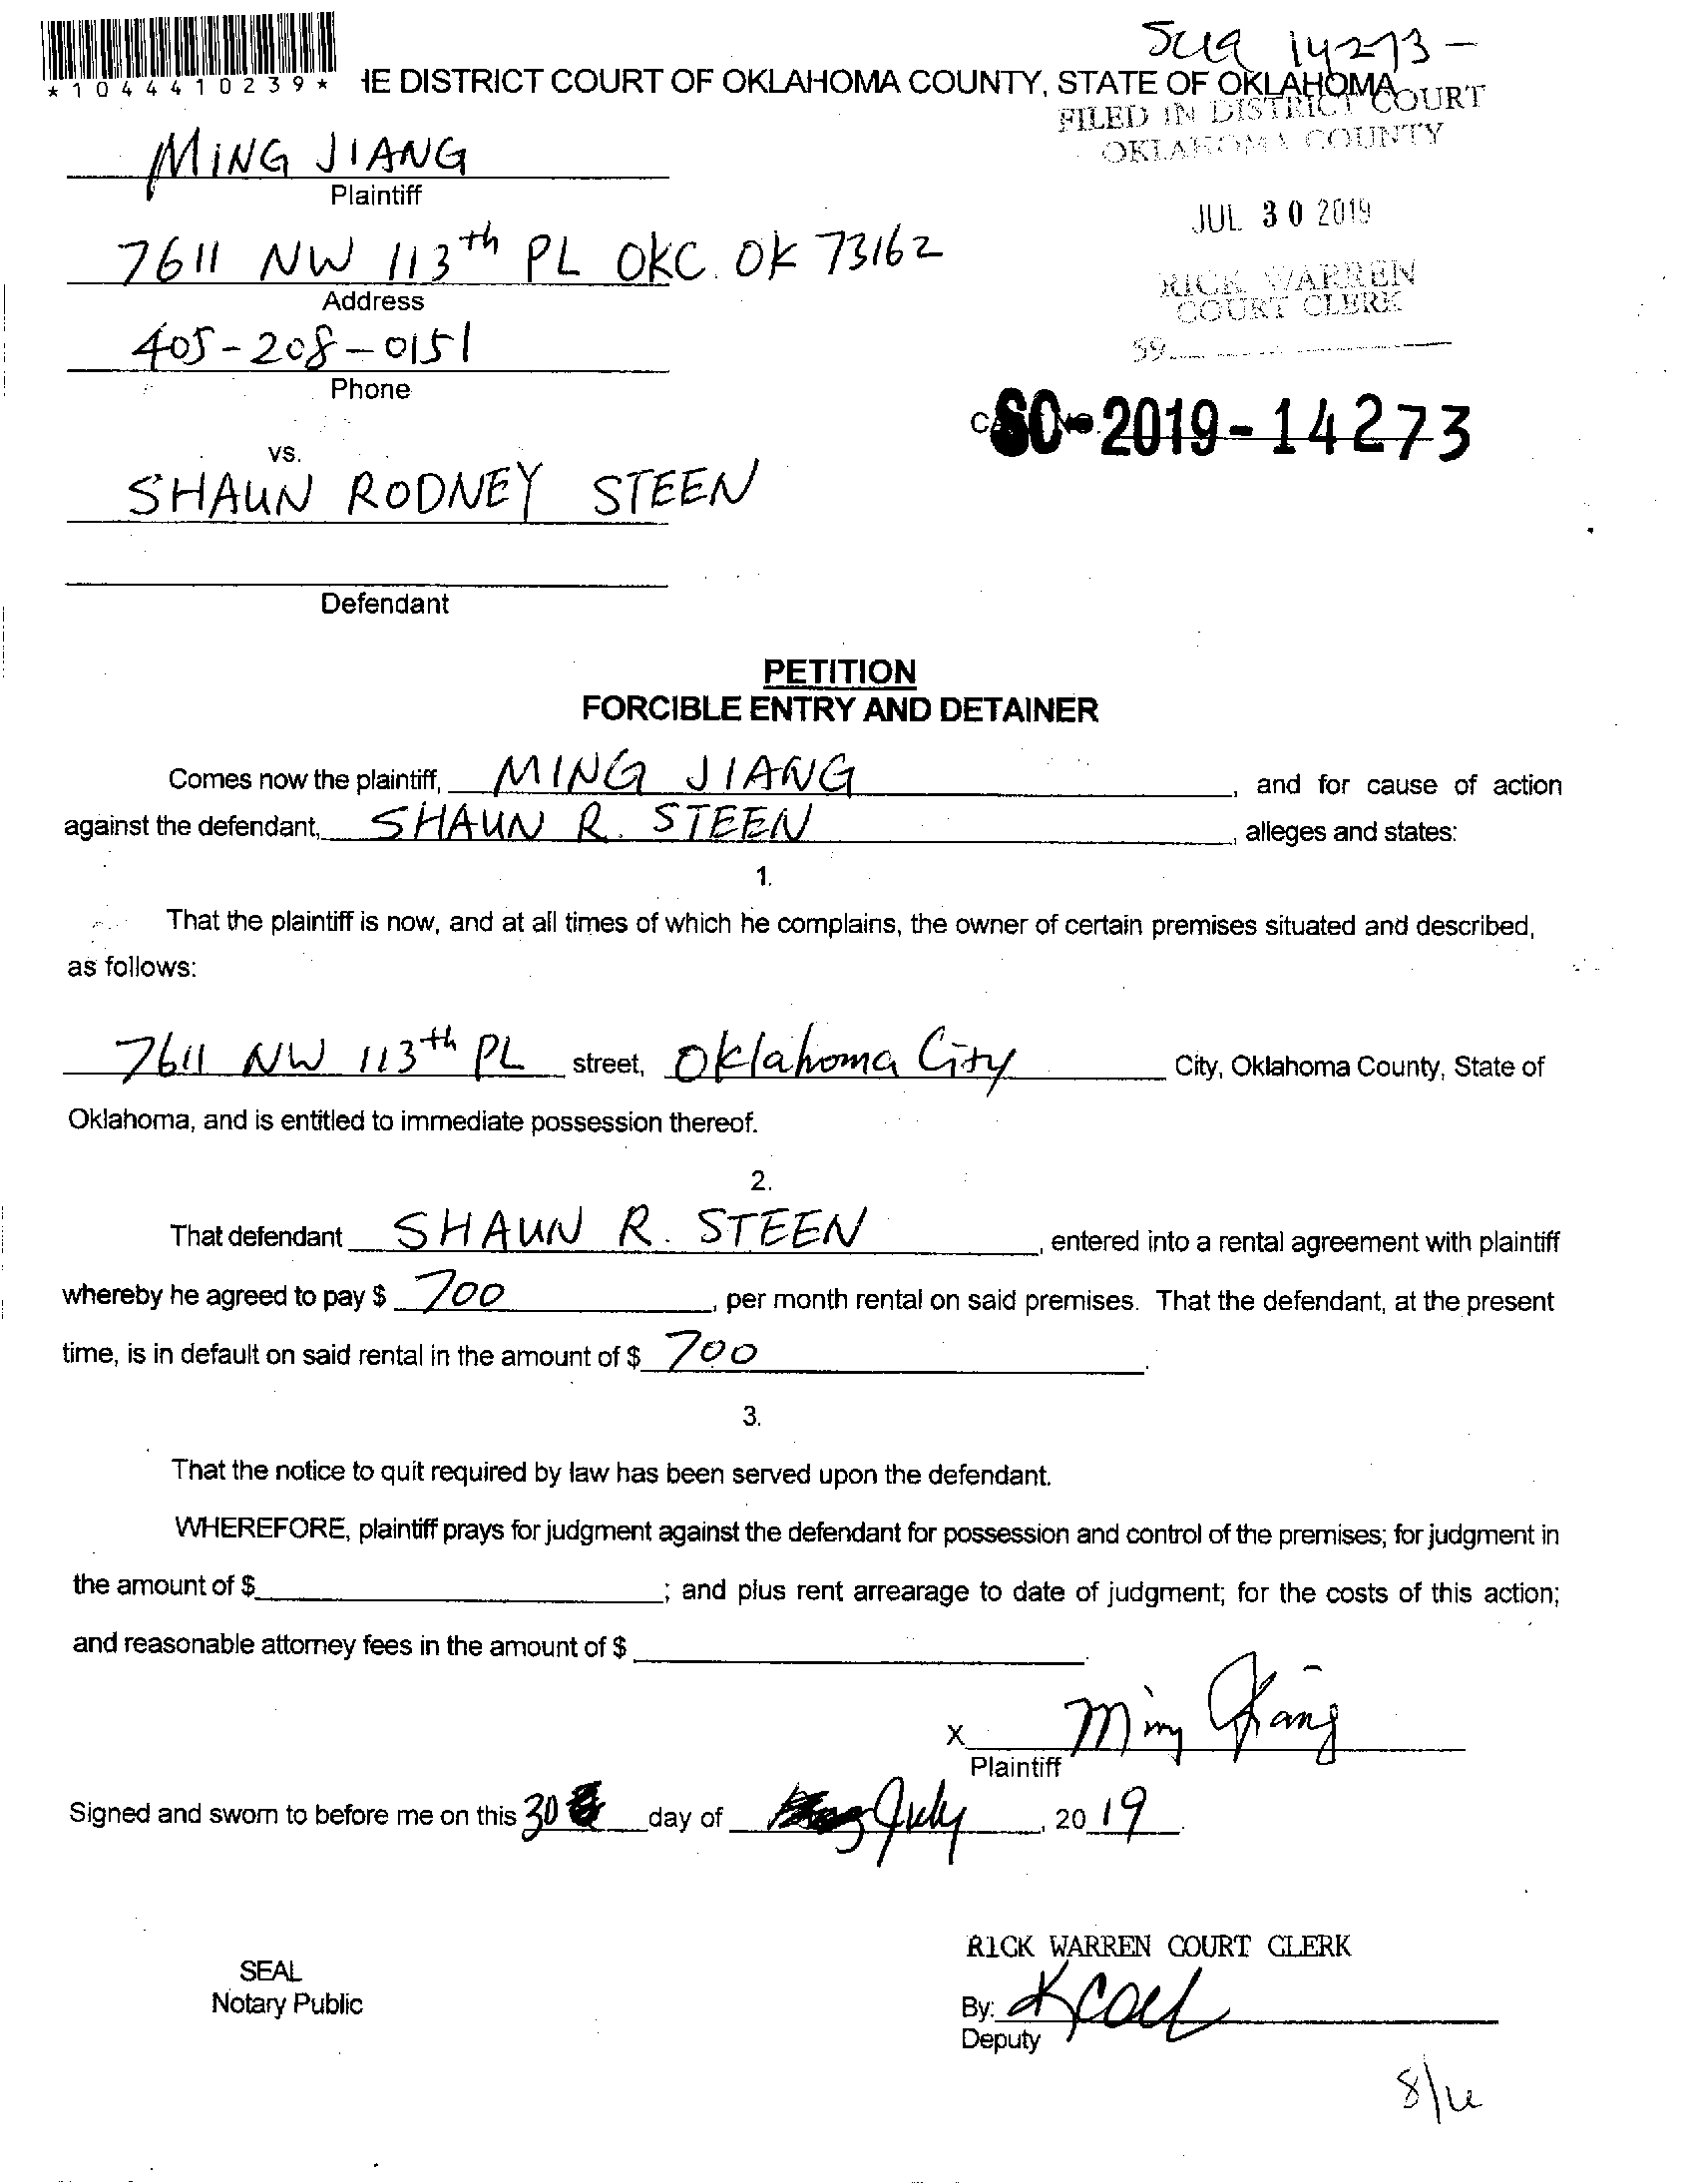 SC19 14273-
*1044410239* HE DISTRICT COURT OF OKLAHOMA COUNTY, STATE OF OKLAHOMA
FILED IN DISTRICT COURT
OKLAHOMA COUNTY
MING JIANG
Plaintiff
JUL 30 2019
7611 NW 113th PL OKC. OK 73162
Address
RICK WARREN
COURT CLERK
405-208-0151
Phone
59
SC-2019-14273
vs.
SHAUN RODNEY STEEN
Defendant
PETITION
FORCIBLE ENTRY AND DETAINER
Comes now the plaintiff, MING JIANG, and for cause of action
against the defendant, SHAUN R. STEEN, alleges and states:
1.
That the plaintiff is now, and at all times of which he complains, the owner of certain premises situated and described,
as follows:
7611 NW 113th PL street, Oklahoma City City, Oklahoma County, State of
Oklahoma, and is entitled to immediate possession thereof.
2.
That defendant SHAUN R. STEEN, entered into a rental agreement with plaintiff
whereby he agreed to pay $ 700, per month rental on said premises. That the defendant, at the present
time, is in default on said rental in the amount of $ 700.
3.
That the notice to quit required by law has been served upon the defendant.
WHEREFORE, plaintiff prays for judgment against the defendant for possession and control of the premises; for judgment in
the amount of $ ; and plus rent arrearage to date of judgment; for the costs of this action;
and reasonable attorney fees in the amount of $ .
X Ming Jiang
Plaintiff
Signed and sworn to before me on this 30 day of July, 2019.
RICK WARREN COURT CLERK
SEAL
Notary Public
By:
Deputy